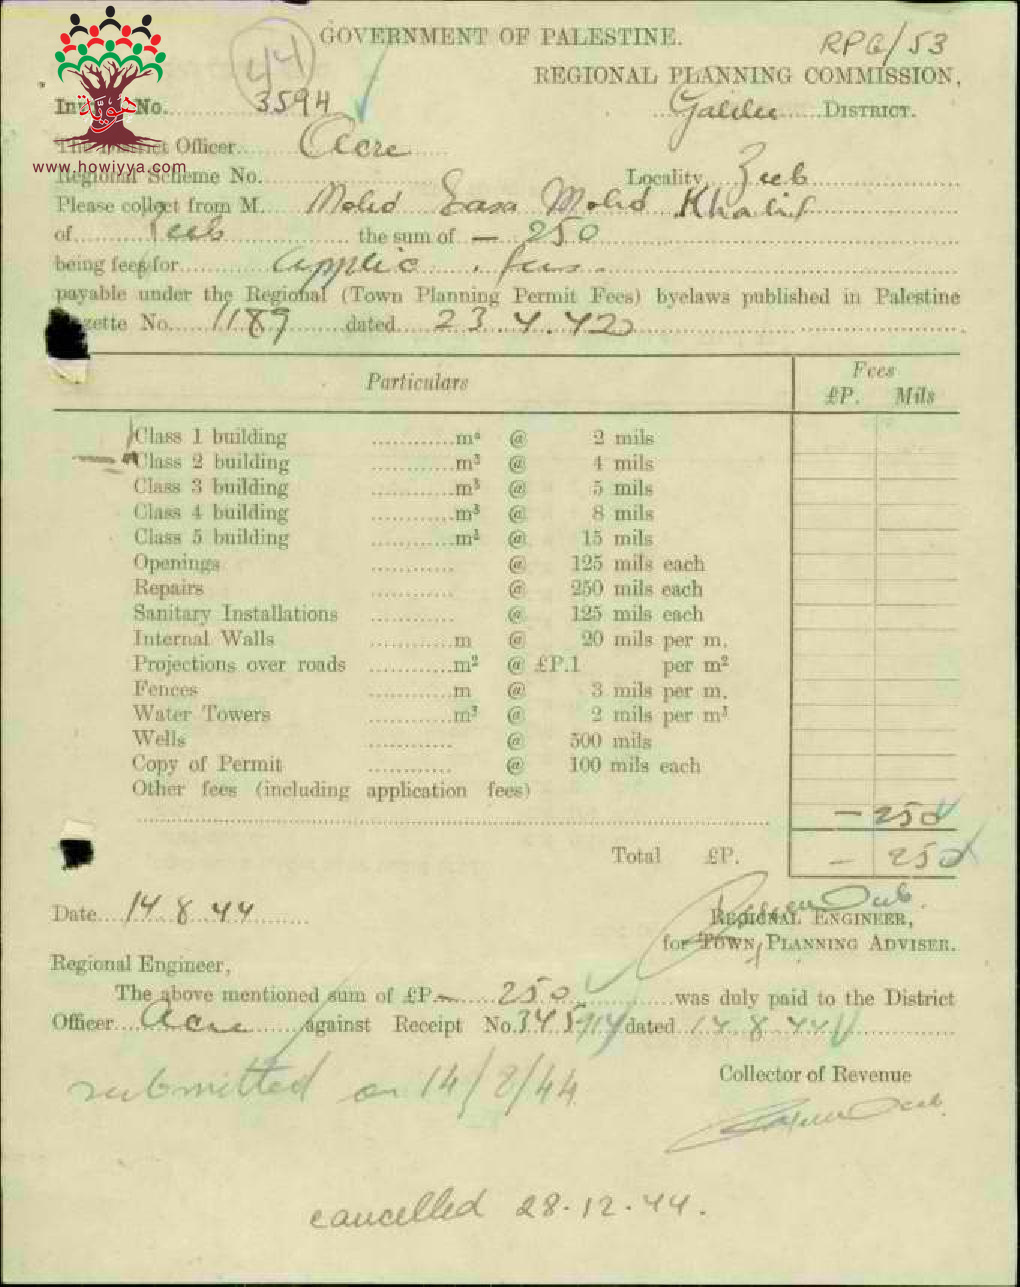 GOVERNMENT OF PALESTINE.
RPG/53
44
REGIONAL PLANNING COMMISSION,
No. 3594
Galilee DISTRICT.
هوية
Officer Acre
www.howiyya.com
Regional Scheme No.
Locality Zeeb
Please collect from M. Mohd Easa Mohd Khalif
of Zeeb the sum of — 250
being fees for applic. fees.
payable under the Regional (Town Planning Permit Fees) byelaws published in Palestine
Gazette No. 1189 dated 23.4.42
Particulars
Fees
£P. Mils
Class 1 building m³ @ 2 mils
Class 2 building m³ @ 4 mils
Class 3 building m³ @ 5 mils
Class 4 building m³ @ 8 mils
Class 5 building m³ @ 15 mils
Openings @ 125 mils each
Repairs @ 250 mils each
Sanitary Installations @ 125 mils each
Internal Walls m @ 20 mils per m.
Projections over roads m² @ £P.1 per m²
Fences m @ 3 mils per m.
Water Towers m³ @ 2 mils per m³
Wells @ 500 mils
Copy of Permit @ 100 mils each
Other fees (including application fees)
— 250
Total £P. — 250
Date 14.8.44
REGIONAL ENGINEER,
for TOWN PLANNING ADVISER.
Regional Engineer,
The above mentioned sum of £P.— 250 was duly paid to the District
Officer Acre against Receipt No. 345914 dated 14.8.44
Collector of Revenue
submitted on 14/8/44
cancelled 28.12.44.